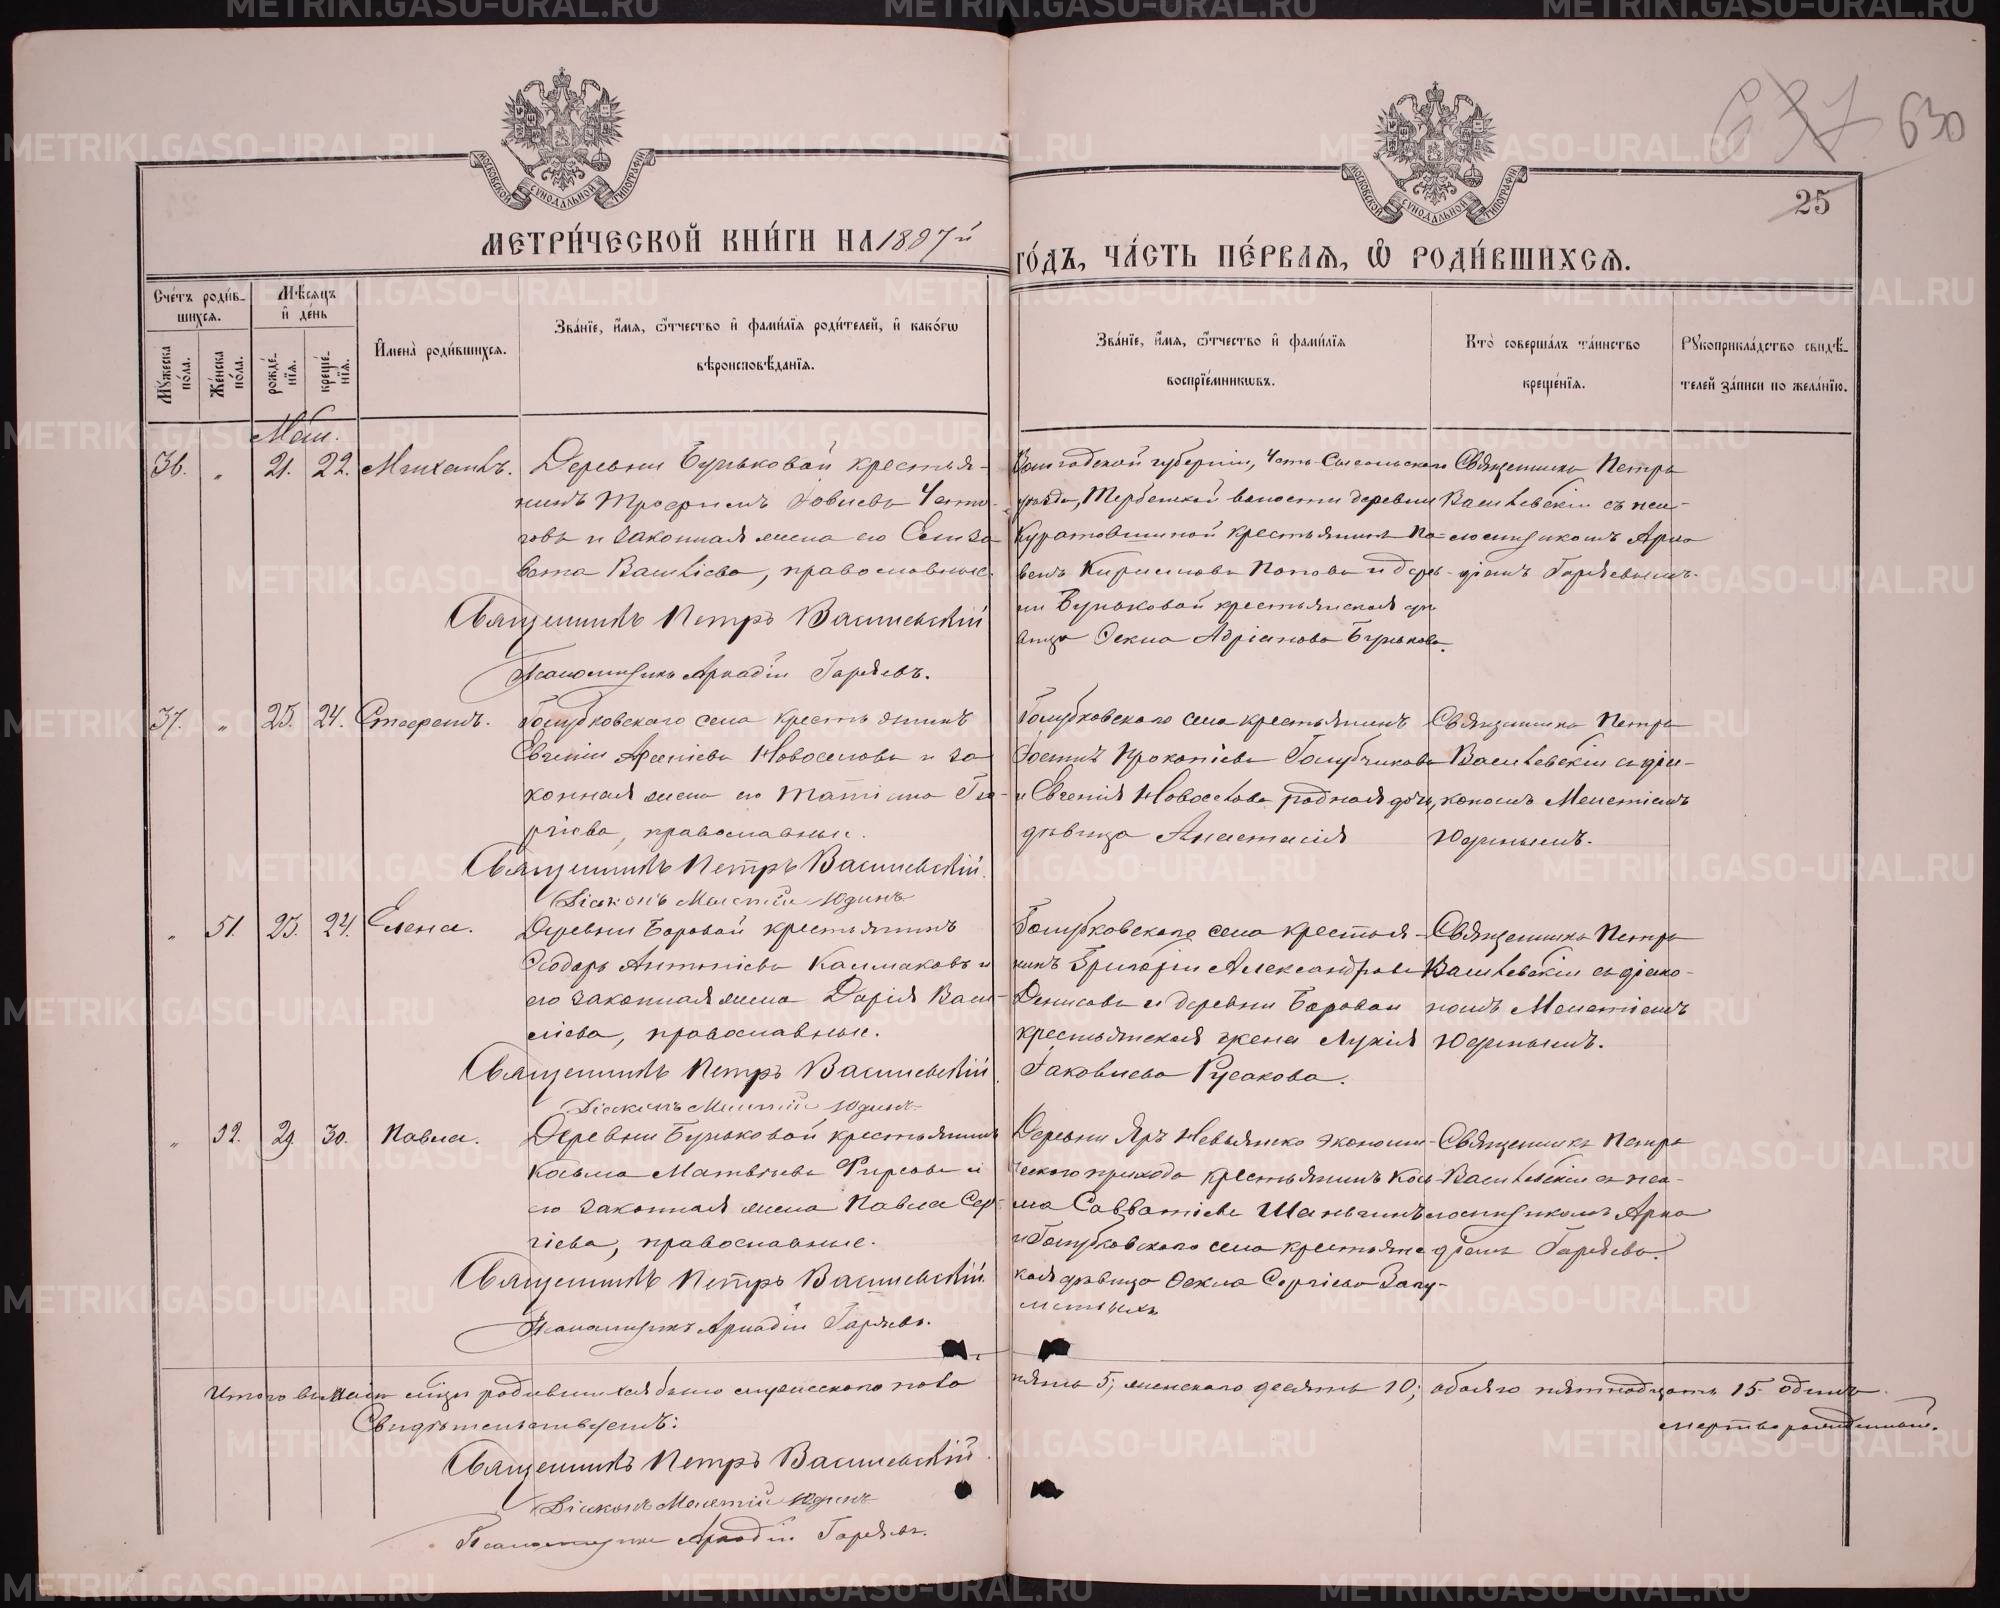 630
25
МОСКОВСКОЙ СѴНОДАЛЬНОЙ ТИПОГРАФІИ
МОСКОВСКОЙ СѴНОДАЛЬНОЙ ТИПОГРАФІИ
МЕТРИ́ЧЕСКОЙ КНИ́ГИ НА 1897 й
ГО́ДЪ, ЧА́СТЬ ПЕ́РВАѦ, Ѽ РОДИ́ВШИХСѦ.
Сче́тъ роди́в-
шихсѧ.
Мꙋ́жеска по́ла.
Же́нска по́ла.
Мѣ́сѧцъ и҆ де́нь
рожде́-нїѧ.
креще́-нїѧ.
И҆мена̀ роди́вшихсѧ.
Зва́нїе, и҆́мѧ, ѻ҆́тчество и҆ фамі́лїѧ роди́телей, и҆ како́гѡ
вѣроисповѣ́данїѧ.
Зва́нїе, и҆́мѧ, ѻ҆́тчество и҆ фамі́лїѧ
воспрїе́мникѡвъ.
Кто̀ соверша́лъ та́инство
креще́нїѧ.
Рꙋкоприкла́дство свидѣ́-
телей за́писи по жела́нїю.
Май.
36. " 21. 22. Михаилъ.
Деревни Буньковой крестья-
нинъ Трофимъ Іовлевъ
и законная жена его Елиза-
вета Василіева, православные.
Священникъ Петръ Василевскій
Псаломщикъ Аркадій Гаряевъ.
Вологодской губерніи, Усть-Сысольскаго
уѣзда, волости деревни
крестьянинъ Па-
велъ Кирилловъ Поповъ и дерев-
ни Буньковой крестьянская дѣ-
вица Ѳекла Адріанова Бунькова.
Священникъ Петръ
Василевскій съ пса-
ломщикомъ Арка-
діемъ Гаряевымъ.
37. " 23. 24. Стефанъ.
Голубковскаго села крестьянинъ
Евгеній Новоселовъ и за-
конная жена его Татіана Ге-
ргіева, православные.
Священникъ Петръ Василевскій.
Діаконъ Мелетій Юдинъ
Голубковскаго села крестьянинъ
Прокопіевъ Голубчиковъ
и Евгенія Новоселова родная дочь,
дѣвица Анастасія
Священникъ Петръ
Василевскій съ діа-
кономъ Мелетіемъ
Юдинымъ.
" 51. 23. 24. Елена.
Деревни Боровой крестьянинъ
Ѳеодоръ Антоніевъ Калмаковъ и
его законная жена Дарія Васи-
ліева, православные.
Священникъ Петръ Василевскій.
Діаконъ Мелетій Юдинъ
Голубковскаго села крестья-
нинъ Григорій Александровъ
Денисовъ и деревни Боровой
крестьянская жена Лукія
Іаковлева Русакова.
Священникъ Петръ
Василевскій съ діако-
номъ Мелетіемъ
Юдинымъ.
" 52. 29. 30. Павла.
Деревни Буньковой крестьянинъ
Косьма Матвѣевъ Фирсовъ и
его законная жена Павла Сер-
гіева, православные.
Священникъ Петръ Василевскій.
Псаломщикъ Аркадій Гаряевъ.
Деревни Яръ Невьянско Экономи-
ческаго прихода крестьянинъ Кось-
ма Савватіевъ Шаньгинъ
и Голубковскаго села крестьянс-
кая дѣвица Ѳекла Сергіева Запу-
Священникъ Петръ
Василевскій съ пса-
ломщикомъ Арка-
діемъ Гаряевы.
Итого въ Маѣ мѣсяцѣ родившихся было мужескаго пола пять 5; женскаго десять 10; обоего пятнадцать 15. одинъ
мертворожденный.
Свидѣтельствуемъ:
Священникъ Петръ Василевскій.
Діаконъ Мелетій Юдинъ
Псаломщикъ Аркадій Гаряевъ.
METRIKI.GASO-URAL.RU